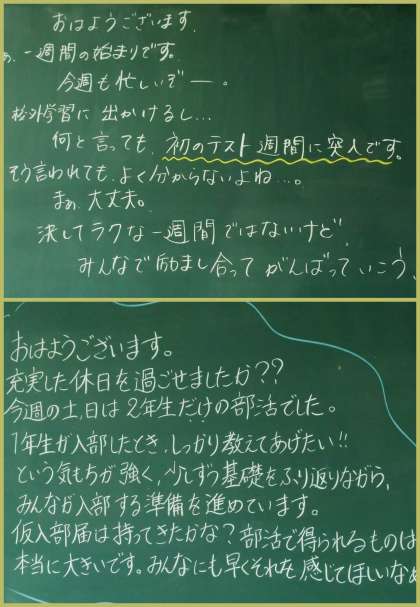 おはようございます。
さぁ、一週間の始まりです。
今週も忙しいぞー。
校外学習に出かけるし…
何と言っても、初のテスト週間に突入です。
そう言われても、よく分からないよね…。
まぁ、大丈夫。
決してラクな一週間ではないけど、
みんなで励まし合ってがんばっていこう！
おはようございます。
充実した休日を過ごせましたか？？
今週の土、日は2年生だけの部活でした。
1年生が入部したとき、しっかり教えてあげたい!!
という気もちが強く、少しずつ基礎をふり返りながら、
みんなが入部する準備を進めています。
仮入部届は持ってきたかな？部活で得られるものは
本当に大きいです。みんなにも早くそれを感じてほしいなぁ